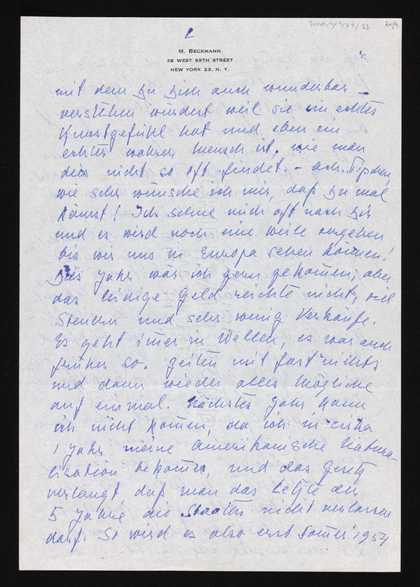 2
M. BECKMANN
38 WEST 69TH STREET
NEW YORK 23, N. Y.
mit dem Du Dich auch wunderbar
verstehen würdest weil sie ein echtes
Kunstgefühl hat und eben ein
echter wahrer Mensch ist, wie man
dies nicht so oft findet. – Ach,
wie sehr wünsche ich mir, daß Du mal
kämst! Ich sehne mich oft nach Dir
und es wird noch eine weile vergehen
bis wir uns in Europa sehen können!
Dies Jahr wär ich gern gekommen, aber
das leidige Geld reichte nicht, viel
Steuern und sehr wenig Verkäufe.
Es geht immer in Wellen, es war auch
früher so. Zeiten mit fast nichts
und dann wieder alles mögliche
auf einmal. Nächstes Jahr kann
ich nicht kommen, da ich in circa
1 Jahr meine amerikanische Natura-
lisation bekomme, und das gesetz
verlangt, daß man das letzte der
5 Jahre die Staaten nicht verlassen
darf. So wird es also erst Sommer 1954